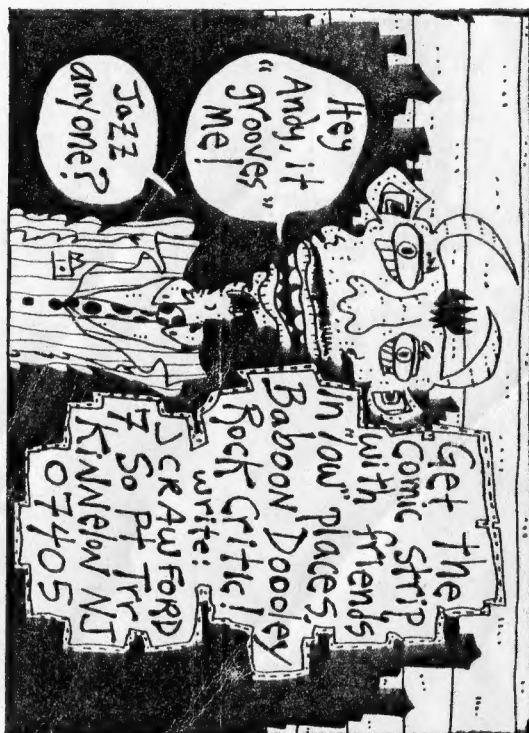 Hey
Andy, it
"grooves"
Me!
Jazz
anyone?
Get the
Comic Strip
with friends
in "low" places.
Baboon Doooley
Rock Critic!
write:
JCRAWFORD
7 So Pt Trr
KiNNelon NJ
07405